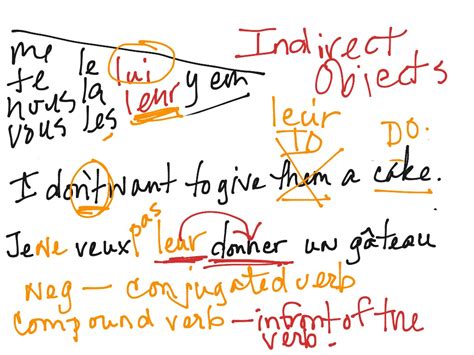 Indirect
Objects
me le lui
te la leur y en
nous les
vous
leur
TO
D.O.
I don't want to give them a cake.
Je ne veux pas leur donner un gâteau
Neg — conjugated verb
compound verb — infront of the
verb.